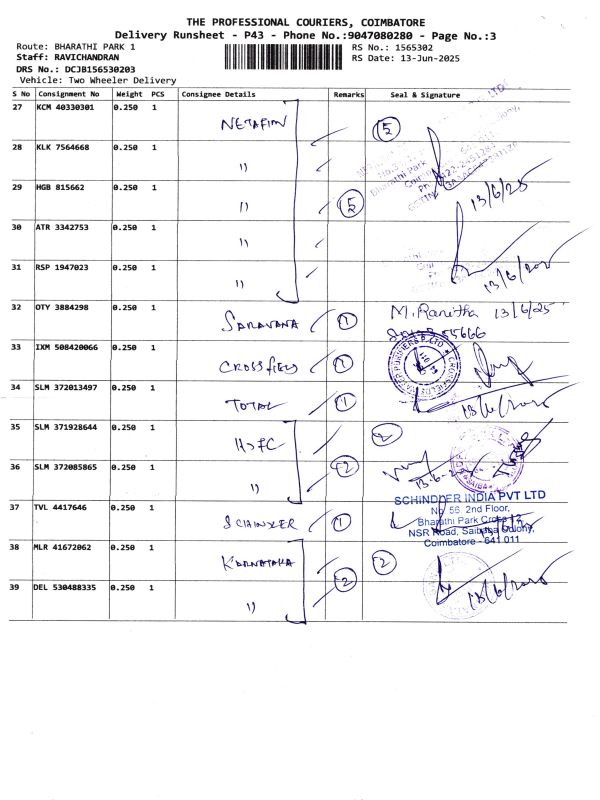 THE PROFESSIONAL COURIERS, COIMBATORE
Delivery Runsheet - P43 - Phone No.:9047080280 - Page No.:3
Route: BHARATHI PARK 1 RS No.: 1565302
Staff: RAVICHANDRAN RS Date: 13-Jun-2025
DRS No.: DCJB156530203
Vehicle: Two Wheeler Delivery
S No Consignment No Weight PCS Consignee Details Remarks Seal & Signature
27 KCM 40330301 0.250 1 NETAFIM 5
28 KLK 7564668 0.250 1 "
29 HGB 815662 0.250 1 " 5 13/6/25
30 ATR 3342753 0.250 1 "
31 RSP 1947023 0.250 1 " 13/6/2025
32 OTY 3884298 0.250 1 SARAVANA 1 M. Ranitha 13/6/25
33 IXM 508420066 0.250 1 CROSSFIELD 1
34 SLM 372013497 0.250 1 TOTAL 1 13/6/2025
35 SLM 371928644 0.250 1 HDFC 2
36 SLM 372085865 0.250 1 " 2
SCHINDLER INDIA PVT LTD
No. 56, 2nd Floor,
37 TVL 4417646 0.250 1 SCHINDLER 1 Bharathi Park Cross
NSR Road, Saibaba Colony,
Coimbatore - 641 011
38 MLR 41672062 0.250 1 KARNATAKA 2
39 DEL 530488335 0.250 1 " 2 13/6/2025